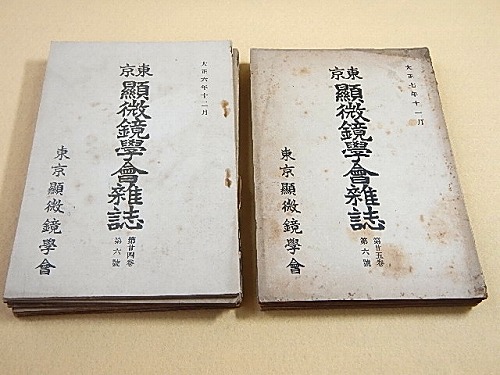 大正六年十二月
東京
顯微鏡學會雜誌
第廿四卷
第六號
東京顯微鏡學會
大正七年十一月
東京
顯微鏡學會雜誌
第廿五卷
第六號
東京顯微鏡學會